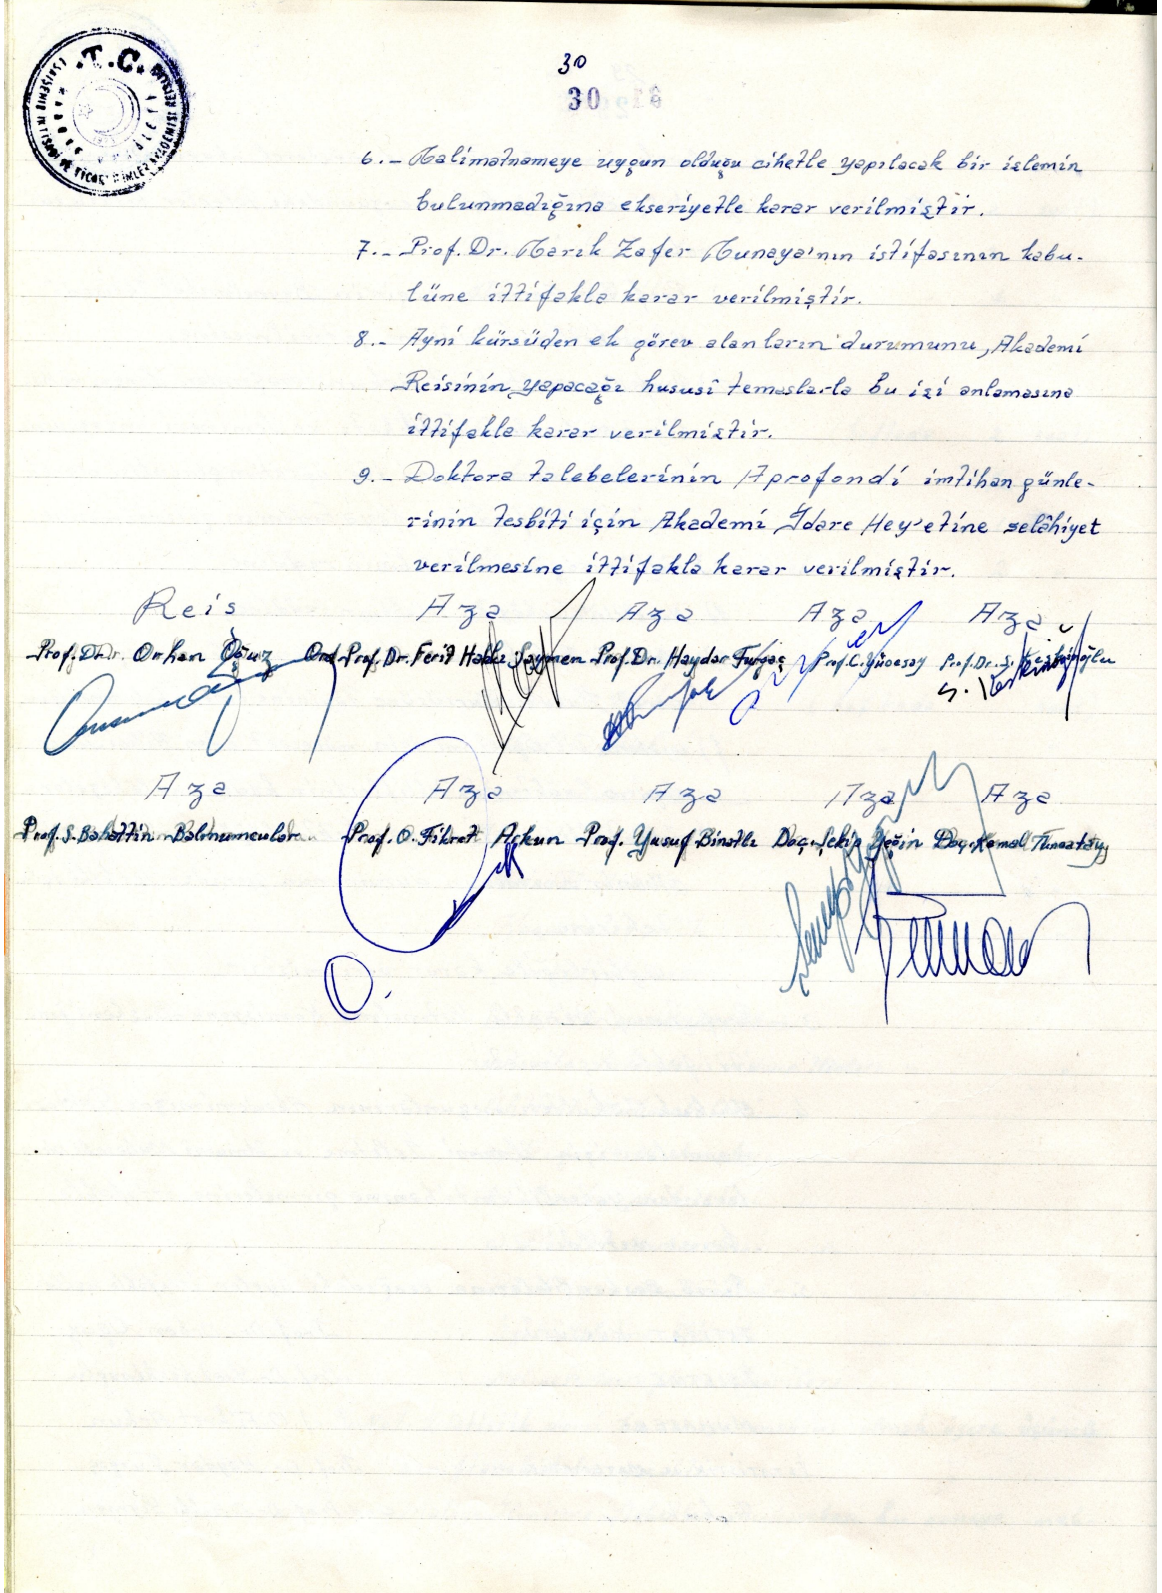 T.C.
ESKİŞEHİR İKTİSADİ VE TİCARİ İLİMLER AKADEMİSİ REİSLİĞİ
30
30
6.- Talimatnameye uygun olduğu cihetle yapılacak bir işlemin
bulunmadığına ekseriyetle karar verilmiştir.
7.- Prof. Dr. Tarık Zafer Tunaya'nın istifasının kabu-
lüne ittifakla karar verilmiştir.
8.- Ayni kürsüden ek görev alanların durumunu, Akademi
Reisinin yapacağı hususî temaslarla bu işi anlamasına
ittifakla karar verilmiştir.
9.- Doktora talebelerinin Aprofondi imtihan günle-
rinin tesbiti için Akademi İdare Hey'etine selâhiyet
verilmesine ittifakla karar verilmiştir.
Reis Aza Aza Aza Aza
Prof. Dr. Orhan Oğuz Ord. Prof. Dr. Ferit Hakkı Saymen Prof. Dr. Haydar Furgaç Prof. C. Yücesoy Prof. Dr. S. Keskinoğlu
S. Keskinoğlu
Aza Aza Aza Aza Aza
Prof. S. Bahattin Balmumcular Prof. O. Fikret Arkun Prof. Yusuf Binatlı Doç. Şekip Yeğin Doç. Kemal Tunçatay